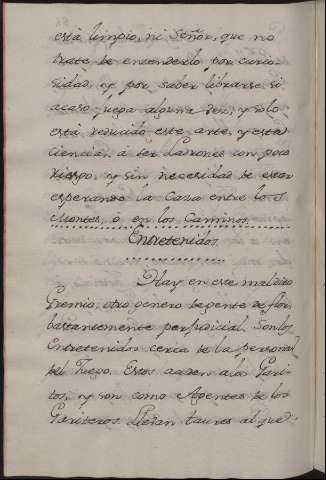 está limpio, ni Señor, que no
trate de entenderlo por curio-
sidad, y por saber librarse si
acaso juega alguna vez, y solo
está reducido este arte, y esta
ciencia, á ser Ladrones con poco
riesgo, y sin necesidad de estar
esperando la Caza entre los
Montes, ó en los Caminos.
Entretenidos.
Hay en este maldito
Gremio, otro genero de gente de flor
bastantemente perjudicial. Son los
Entretenidos cerca de la persona
del Juego. Estos asisten a los Gari-
tos, y son como Agentes de los
Gariteros. Llevan taures al que